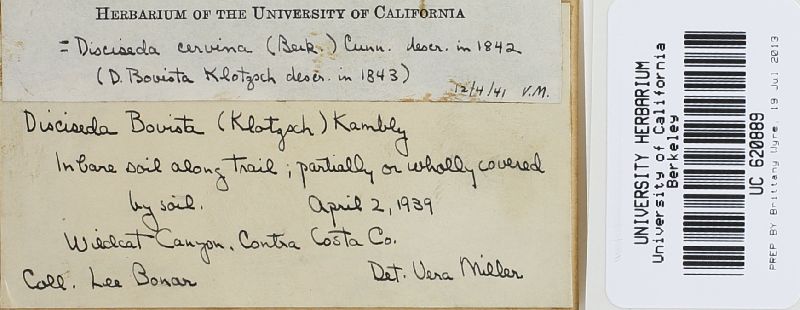 HERBARIUM OF THE UNIVERSITY OF CALIFORNIA
= Disciseda cervina (Berk.) Cunn. descr. in 1842
(D. Bovista Klotzsch descr. in 1843)
12/4/41 V.M.
Disciseda Bovista (Klotzsch) Kambly
In bare soil along trail; partially or wholly covered
by soil. April 2, 1939
Wildcat Canyon, Contra Costa Co.
Coll. Lee Bonar Det. Vera Miller
UNIVERSITY HERBARIUM
University of California
Berkeley
UC 620889
PREP BY Brittany Uyre, 19 Jul 2013